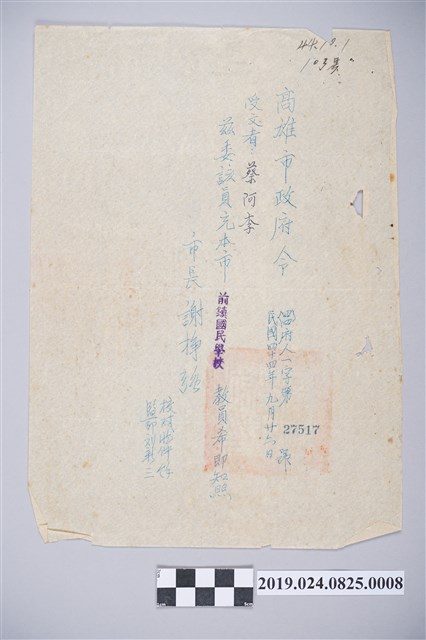 44.10.1
高雄市政府令
高府人一字第27517號
民國四十四年九月廿六日
受文者：蔡阿李
茲委該員充本市前鎮國民學校教員希即知照
市長謝掙強
2019.024.0825.0008